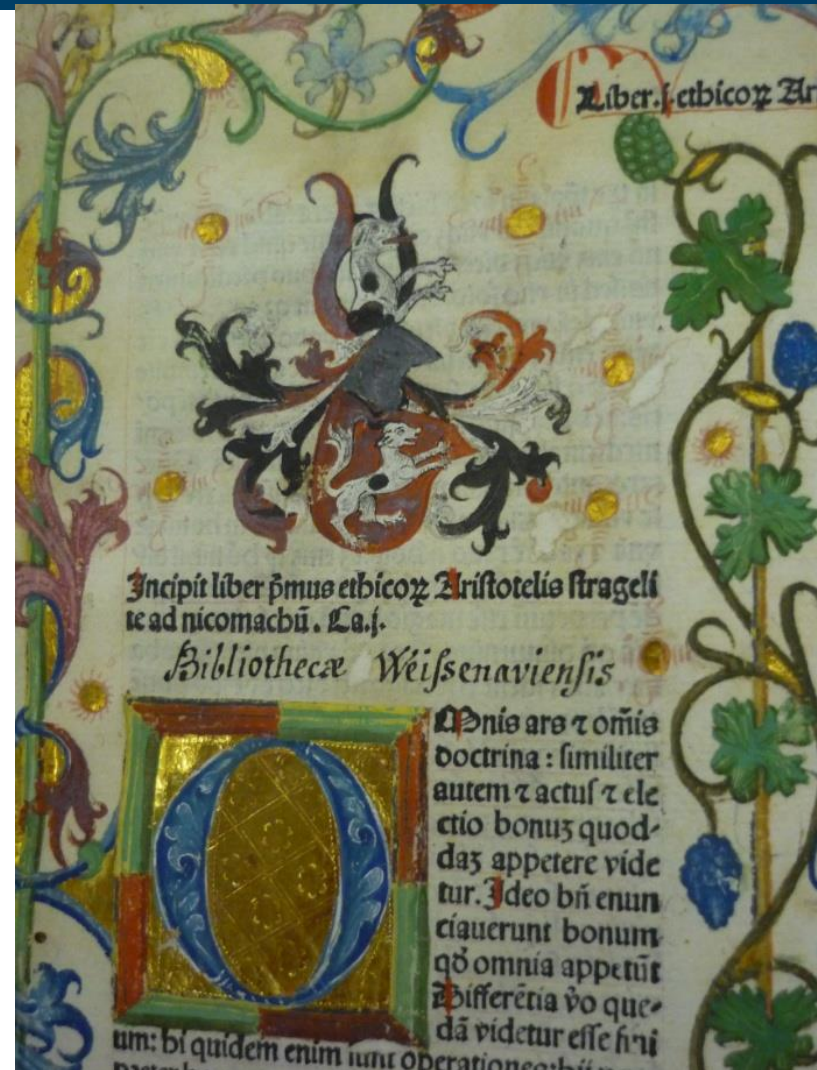 Liber .j. ethicoꝝ Ar
Incipit liber p̄mus ethicoꝝ Aristotelis strageli
te ad nicomachū. Ca.j.
Bibliothecæ Weiſsenaviensis
OMnis ars ⁊ om̄is
doctrina : similiter
autem ⁊ actus ⁊ ele
ctio bonuʒ quod-
daʒ appetere vide
tur. Ideo bn̄ enun
ciauerunt bonum
qď omnia appetūt
Differētia v̊o que-
dā videtur esse fini
um: hi quidem enim sunt operationes: hij